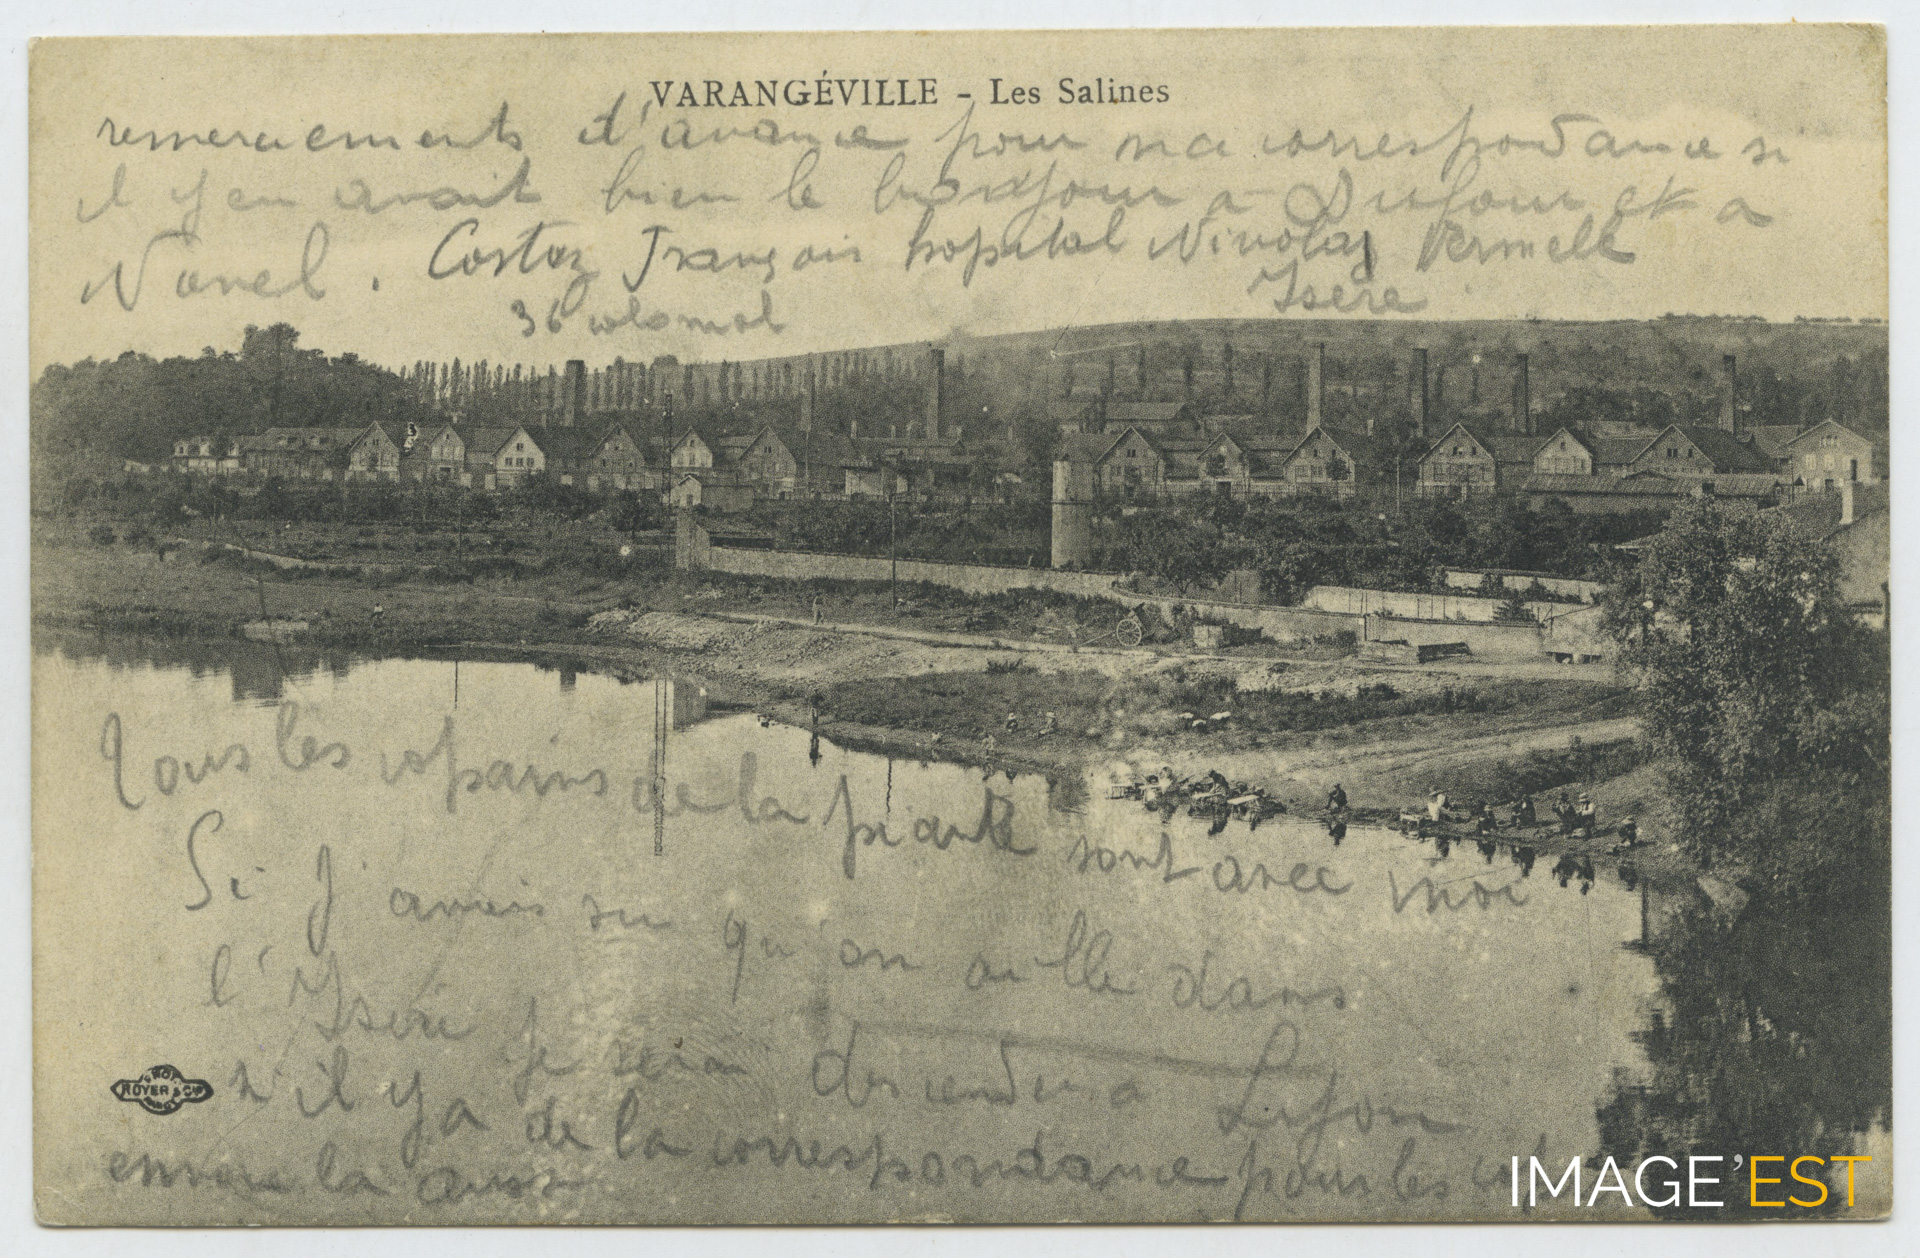 VARANGÉVILLE - Les Salines
remerciements d'avance pour ma correspondance si
il y en avait bien le bonjour a Dufour et a
Navel. Costaz François hopital Nivolas Vermelle
36 colonial Isère
Tous les copains de la piaule sont avec moi
Si j'avais su qu'on aille dans
l'Isère je serai descendu a Lyon
s'il y a de la correspondance pour les
envoie la aussi
PHOT.
ROYER & Cie
NANCY
IMAGE'EST